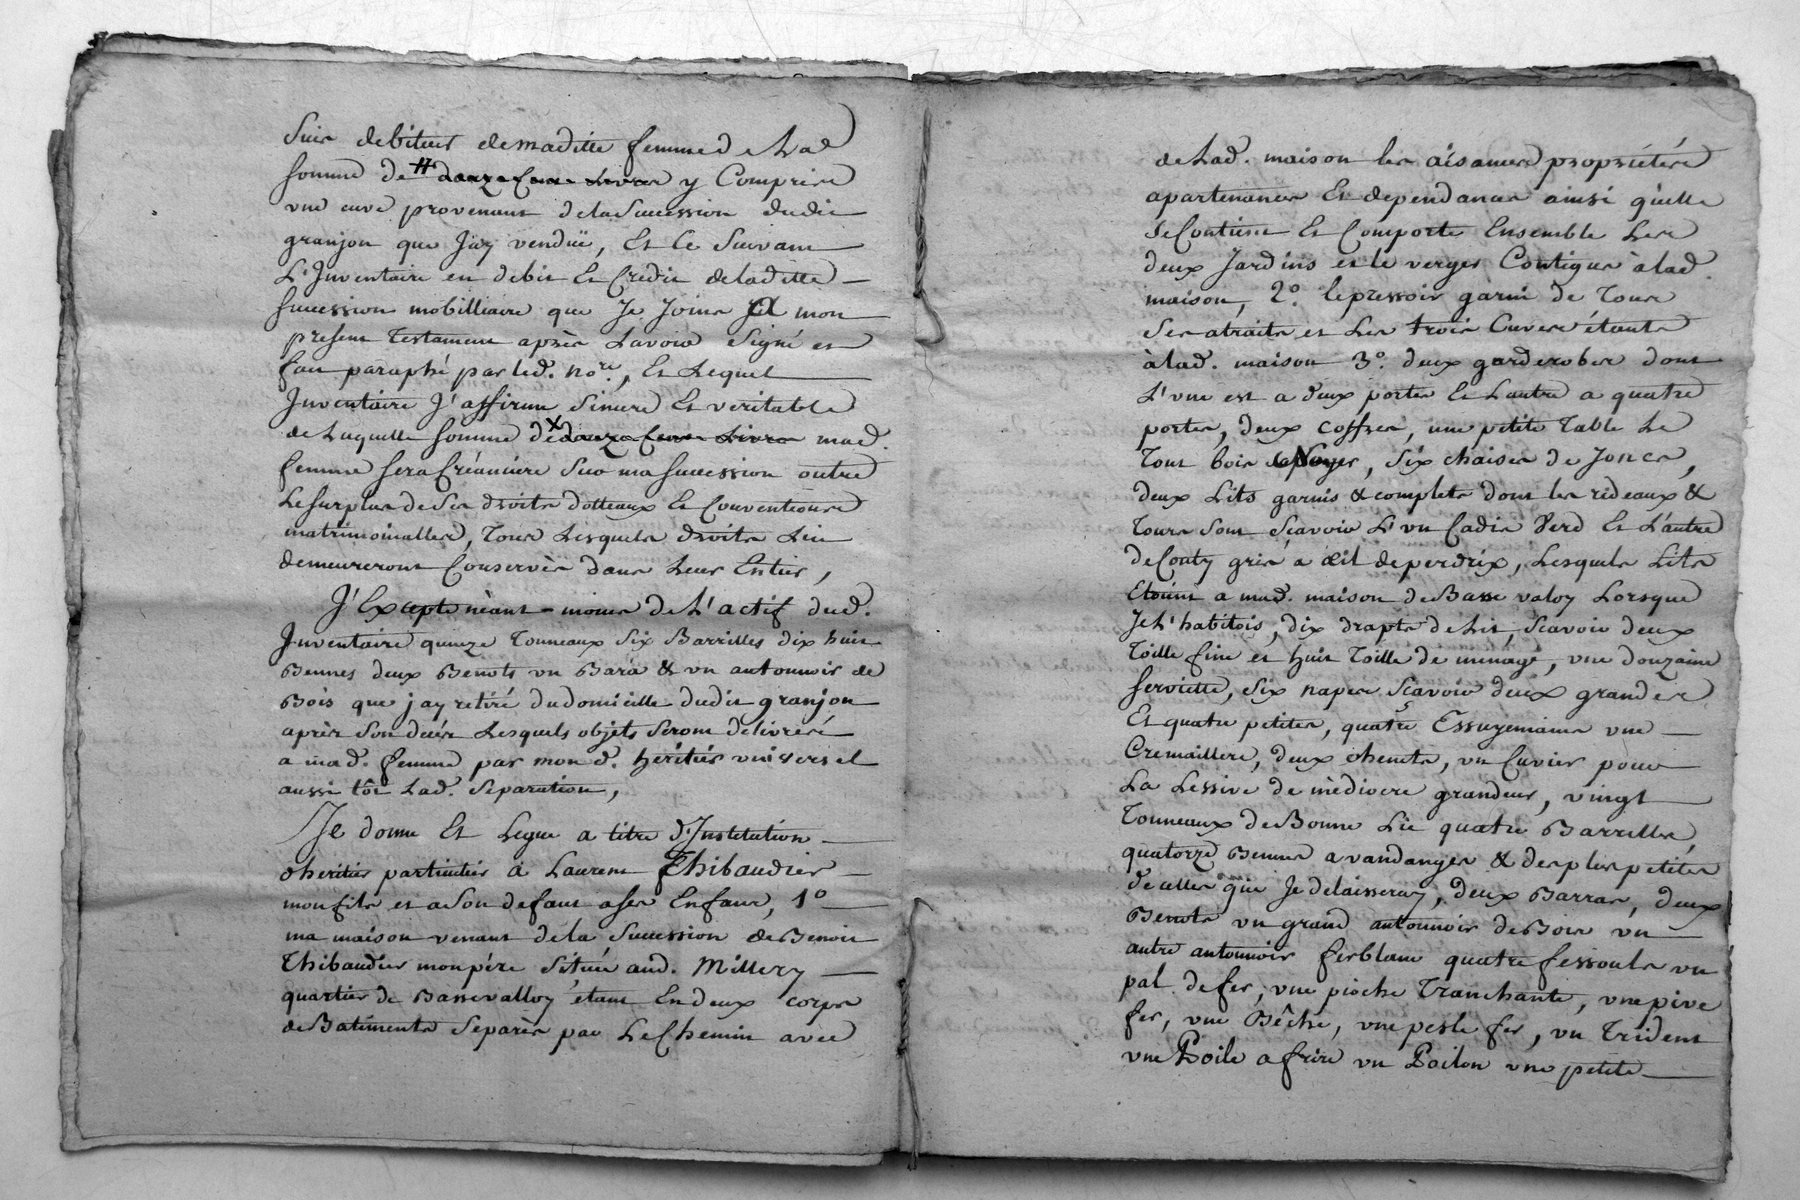 Suis debiteur de maditte femme de Lad
somme de # douze Cens Livres y Compris
vne cuve provenant de la Succession dudit
granjon que J'ay venduë, Et Ce Suivant
L'Inventaire en debit Et Credit de laditte —
Succession mobilliaire que Je Joins a mon
present Testament après Lavoir Signé et
fait paraphé par led. no.re, Et Lequel
Inventaire J'affirme Sincere Et veritable
de Laquelle Somme de x douze Cens Livres mad.
femme Sera Créanciere Sur ma Succession outre
Le Surplus de Ses droits dotteaux Et Conventions
matrimoinalles, Tous Lesquels droits Lui
demeureront Conservès dans Leur Entier,
J'Excepte nèant-moins de L'actif dud.
Inventaire quinze Tonneaux Six Barrilles dix huit
Bennes deux Benots un Bara & vn antonnoir de
Bois que j'ay retiré du domicille dudit granjon
après Son décès Lesquels objets Seront délivrés
a mad. femme par mon d. héritier universel
aussi tôt Lad. Separation,
Je donne Et Legue a titre d'Institution —
dheritier particulier à Laurent Thibaudier —
mon fils et a Son defaut a Ses Enfans, 1° —
ma maison venant de la Succession de Benoit
Thibaudier mon père Située aud. Millery —
quartier de Bassevalloy étant En deux corps
de Batiments Separès par Le Chemin avec
de Lad. maison les aisances propriétés
apartenances Et dependances ainsi qu'elle
Se Contient Et Comporte Ensemble Les
deux Jardins et le verger Contigus à lad.
maison, 2.° le pressoir garni de Tous
Ses atraits et Les trois Cuves étants
à lad. maison 3.° deux garderobes dont
L'vne est a deux portes Et Lautre a quatre
portes, deux coffres, une petite Table Le
Tout bois de Noyer, Six chaises de Joncs,
deux Lits garnis & complets dont les rideaux &
Tours Sont Sçavoir L'vn Cadis Verd Et L'autre
de Couty gris a œil de perdrix, Lesquels Lits
Etoient a mad. maison de Basse valoy Lorsque
Je L'habitois, dix drapts de Lit, Sçavoir deux
Toille fine et huit Toille de menage, vne douzaine
Serviette, Six napes Sçavoir deux grandes
Et quatre petites, quatre Essuyemains une —
Cremaillere, deux chenets, vn Cuvier pour
La Lessive de mèdiocre grandeur, vingt
Tonneaux de Bonne Lie quatre Barrilles,
quatorze Bennes a vandanger & des plus petites
de celles que Je delaisseray, deux Barras, deux
Benots vn grand antonnoir de Bois vn —
autre antonnoir ferblanc quatre fessouls vn
pal de fer, vne pioche Tranchante, vne pive
fer, vne Bêche, vne pesle fer, vn Trident
vne Poile a frire vn Poilon vne petite —